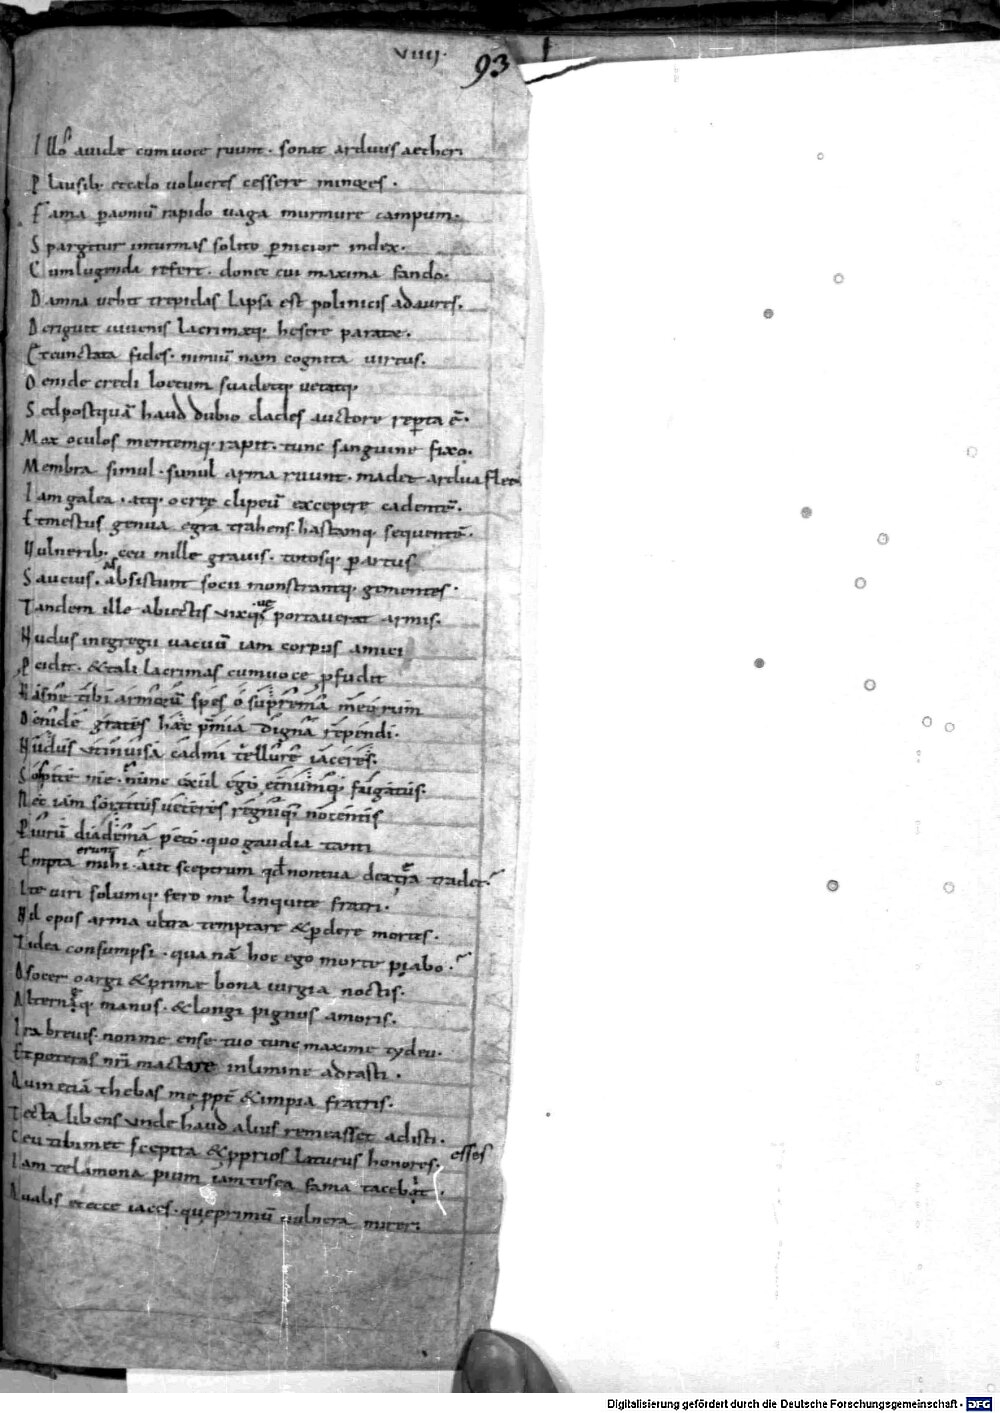 VIIII.
93
Illos auidae cum uoce ruunt. sonat arduus aether
Plausib; et caelo uolucres cessere minores.
Fama p aoniū rapido uaga murmure campum.
Spargitur in turmas solito pnicior index.
Cum lugenda refert. donec cui maxima fando.
Damna uehit trepidas lapsa est polinicis ad aures.
Deriguit iuuenis lacrimæq; hesere paratae.
Et cunctata fides. nimiū nam cognita uirtus.
Oenide credi loetum suadetq; uetatq;
Sed postquā haud dubio clades auctore repta ē.
Nox oculos mentemq; rapit. tunc sanguine fixo.
Membra simul. simul arma ruunt. madet ardua fletu
Iam galea. atq; ocreę clipeū excepere cadentē.
It mestus genua egra trahens hastamq; sequentē.
Vulnerib; ceu mille grauis. totosq; p artus
Saucius. absistunt socii monstrantq; gementes.
Tandem ille abiectis uixq; que portauerat armis.
Nudus in egregii uacuū iam corpus amici
Pcidit. & tali lacrimas cum uoce pfudit
Hasne tibi armorū spes o suprema meorum
Oenide grates haec pmia digna rependi.
Nudus ut inuisa cadmi tellure iaceres.
Sospite me. nunc exul ego eternumq; fugatus.
Nec iam sortitus ueteres regniq; nocentis
Piurū diadema peto. quo gaudia tanti
Empta mihi erunt aut sceptrum qd non tua dextra tradet.
Ite uiri solumq; fero me linquite fratri.
Nil opus arma ultra temptare & pdere mortes.
Tidea consumpsi. qua nā hoc ego morte piabo.
O socer o argi & primae bona iurgia noctis.
Alternæq; manus. & longi pignus amoris.
Ira breuis. non me ense tuo tunc maxime tydeu.
Et poteras nrī mactare in limine adrasti.
Quin etiā thebas me ppt & impia fratris.
Tecta libens unde haud alius remeasset adisti.
Ceu tibimet sceptra & pprios laturus honores. esses
Iam telamona pium iam tesea fama tacebat.
Qualis et ecce iaces. que primū uulnera mirer.
Digitalisierung gefördert durch die Deutsche Forschungsgemeinschaft - DFG